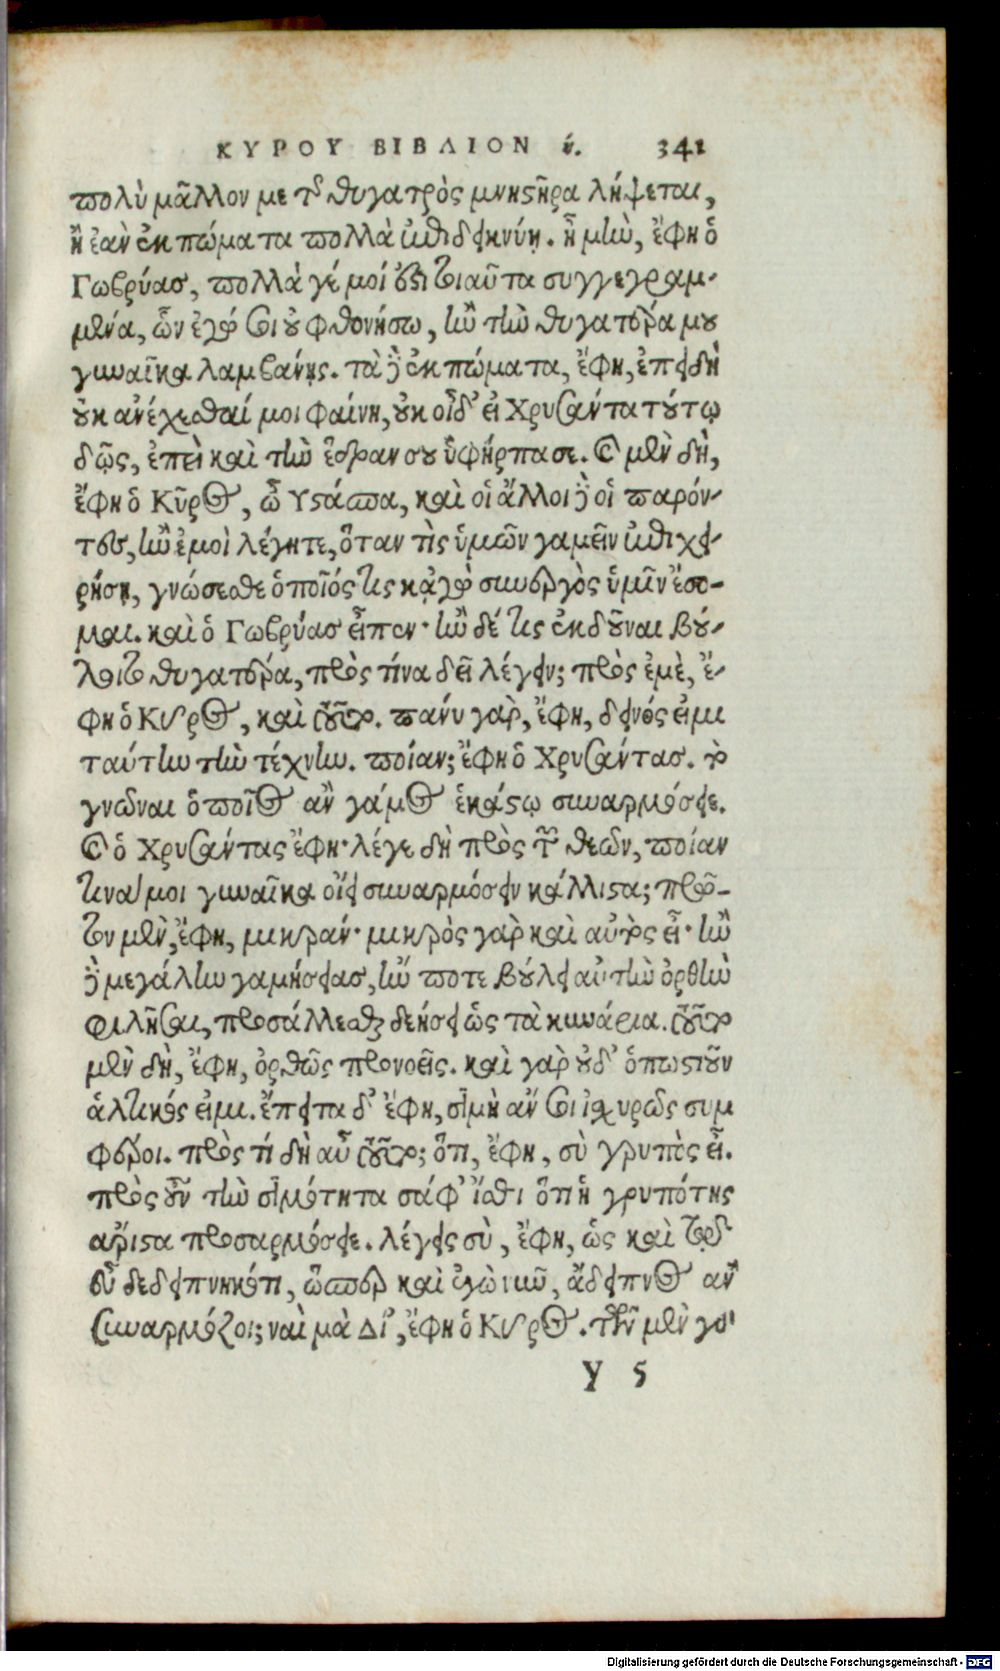 ΚΥΡΟΥ ΒΙΒΛΙΟΝ ή. 341
πολὺ μᾶλλον με τῆς θυγατρὸς μνηστῆρα λήψεται,
ἢ ἐὰν ἐκπώματα πολλὰ ἐπιδεικνύῃ. ἦ μὴν, ἔφη ὁ
Γωβρύας, πολλὰ γέ μοί ἐστι τοιαῦτα συγγεγραμ-
μένα, ὧν ἐγώ σοι οὐ φθονήσω, ἢν τὴν θυγατέρα μου
γυναῖκα λαμβάνῃς. τὰ δὲ ἐκπώματα, ἔφη, ἐπειδὴ
οὐκ ἀνέχεσθαί μοι φαίνῃ, οὐκ οἶδ' εἰ Χρυσάντα τούτῳ
δῶς, ἐπεὶ καὶ τὴν ἕδραν σου ὑφήρπασε. Καὶ μὲν δὴ,
ἔφη ὁ Κῦρος, ὦ Υστάσπα, καὶ οἱ ἄλλοι δὲ οἱ παρόν-
τες, ἢν ἐμοὶ λέγητε, ὅταν τὶς ὑμῶν γαμεῖν ἐπιχει-
ρήσῃ, γνώσεσθε ὁποῖός τις κᾀγὼ συνεργὸς ὑμῖν ἔσο-
μαι. καὶ ὁ Γωβρύας εἶπεν· ἢν δέ τις ἐκδοῦναι βού-
λοιτο θυγατέρα, πρὸς τίνα δεῖ λέγειν; πρὸς ἐμὲ, ἔ-
φη ὁ Κῦρος, καὶ τοῦτο. πάνυ γὰρ, ἔφη, δεινός εἰμι
ταύτην τὴν τέχνην. ποίαν; ἔφη ὁ Χρυσάντας. τὸ
γνῶναι ὁποῖος ἂν γάμος ἑκάστῳ συναρμόσειε.
Καὶ ὁ Χρυσάντας ἔφη· λέγε δὴ πρὸς τῶν θεῶν, ποίαν
τινά μοι γυναῖκα οἴει συναρμόσειν κάλλιστα; πρῶ-
τον μὲν, ἔφη, μικράν· μικρὸς γὰρ καὶ αὐτὸς εἶ· ἢν
δὲ μεγάλην γαμήσειας, ἤν ποτε βούλει αὐτὴν ὀρθὴν
φιλῆσαι, προσάλλεσθαι δεήσει ὡς τὰ κυνάρια. τοῦτο
μὲν δὴ, ἔφη, ὀρθῶς προνοεῖς. καὶ γὰρ οὐδ' ὁπωστιοῦν
ἁλτικός εἰμι. ἔπειτα δ' ἔφη, σιμὴ ἄν σοι ἰσχυρῶς συμ
φέροι. πρὸς τί δὴ αὖ τοῦτο; ὅτι, ἔφη, σὺ γρυπὸς εἶ.
πρὸς οὖν τὴν σιμότητα σάφ' ἴσθι ὅτι ἡ γρυπότης
ἄριστα προσαρμόσειε. λέγεις σὺ, ἔφη, ὡς καὶ τῷ
εὖ δεδειπνηκότι, ὥσπερ καὶ ἐγὼ νῦν, ἄδειπνος ἂν
συναρμόζοι; ναὶ μὰ Δί', ἔφη ὁ Κῦρος. τῶν μὲν γὰ
Υ 5
Digitalisierung gefördert durch die Deutsche Forschungsgemeinschaft - DFG